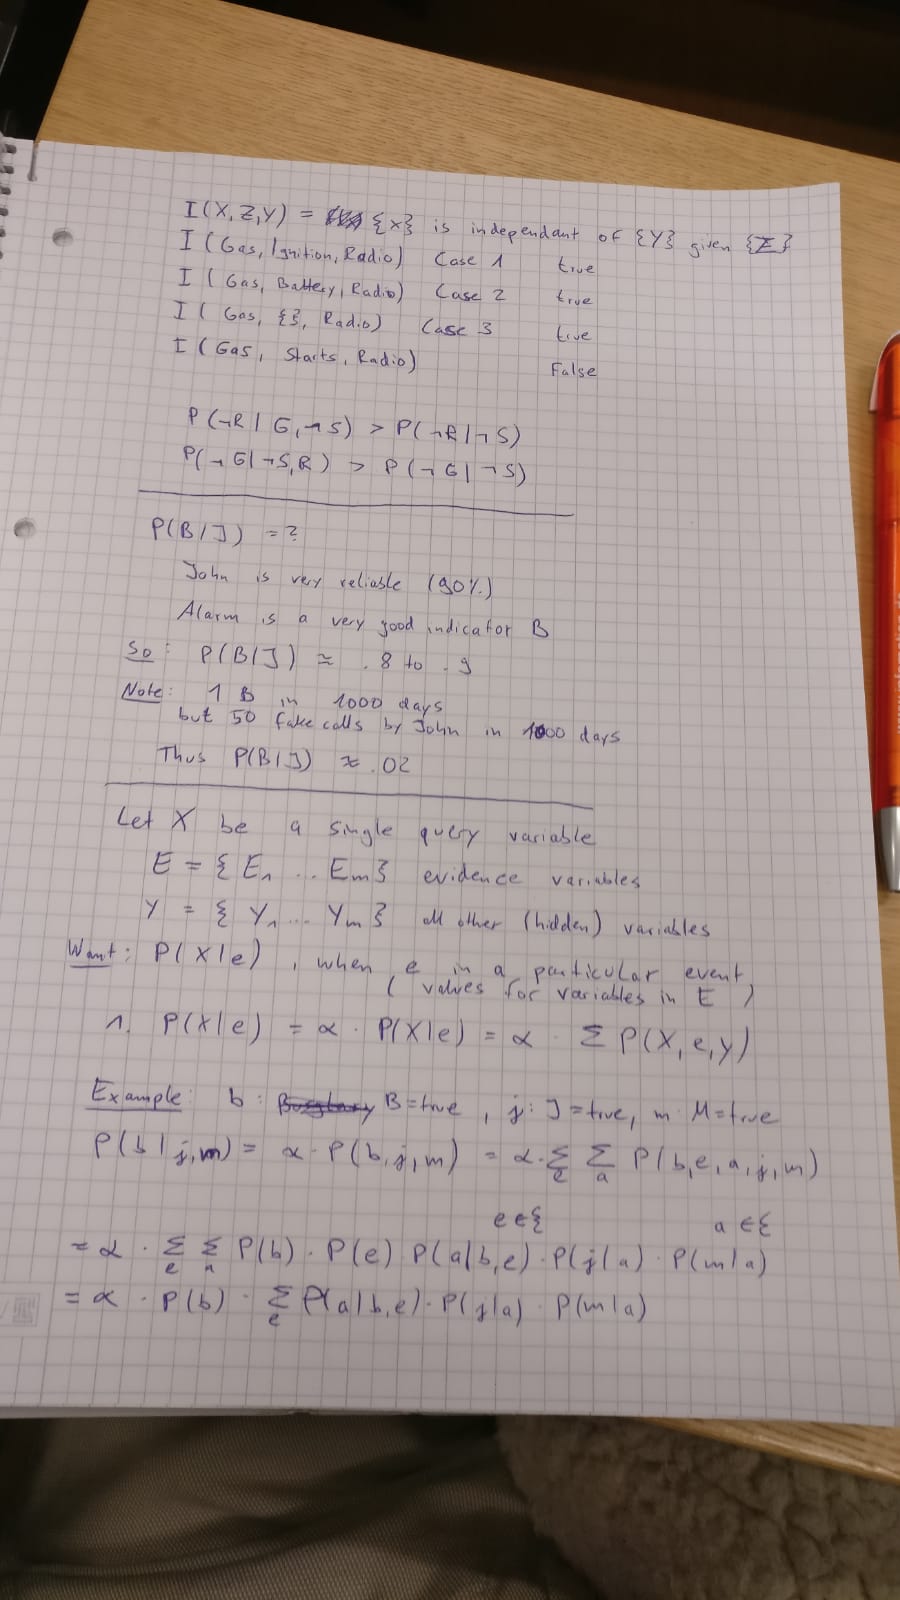 I(X,Z,Y) = {x} is independant of {Y} given {Z}
I (Gas, Ignition, Radio) Case 1 true
I (Gas, Battery, Radio) Case 2 true
I (Gas, {}, Radio) Case 3 true
I (Gas, Starts, Radio) False
P(¬R | G,¬S) > P(¬R|¬S)
P(¬G|¬S,R) > P(¬G|¬S)
P(B|J) = ?
John is very reliable (90%)
Alarm is a very good indicator B
So: P(B|J) ≈ .8 to .9
Note: 1 B in 1000 days
but 50 fake calls by John in 1000 days
Thus P(B|J) ≈ .02
Let X be a single query variable
E = {E₁ ... Em} evidence variables
Y = {Y₁ ... Ym} all other (hidden) variables
Want: P(X|e), when e in a particular event
(values for variables in E)
1. P(X|e) = α · P(X|e) = α · Σ P(X,e,y)
Example: b: B=true, j: J=true, m: M=true
P(b|j,m) = α · P(b,j,m) = α · Σe Σa P(b,e,a,j,m)
e ∈ { a ∈ {
= α · Σe Σa P(b) · P(e) P(a|b,e) · P(j|a) · P(m|a)
= α · P(b) · Σe P(a|b,e) · P(j|a) · P(m|a)